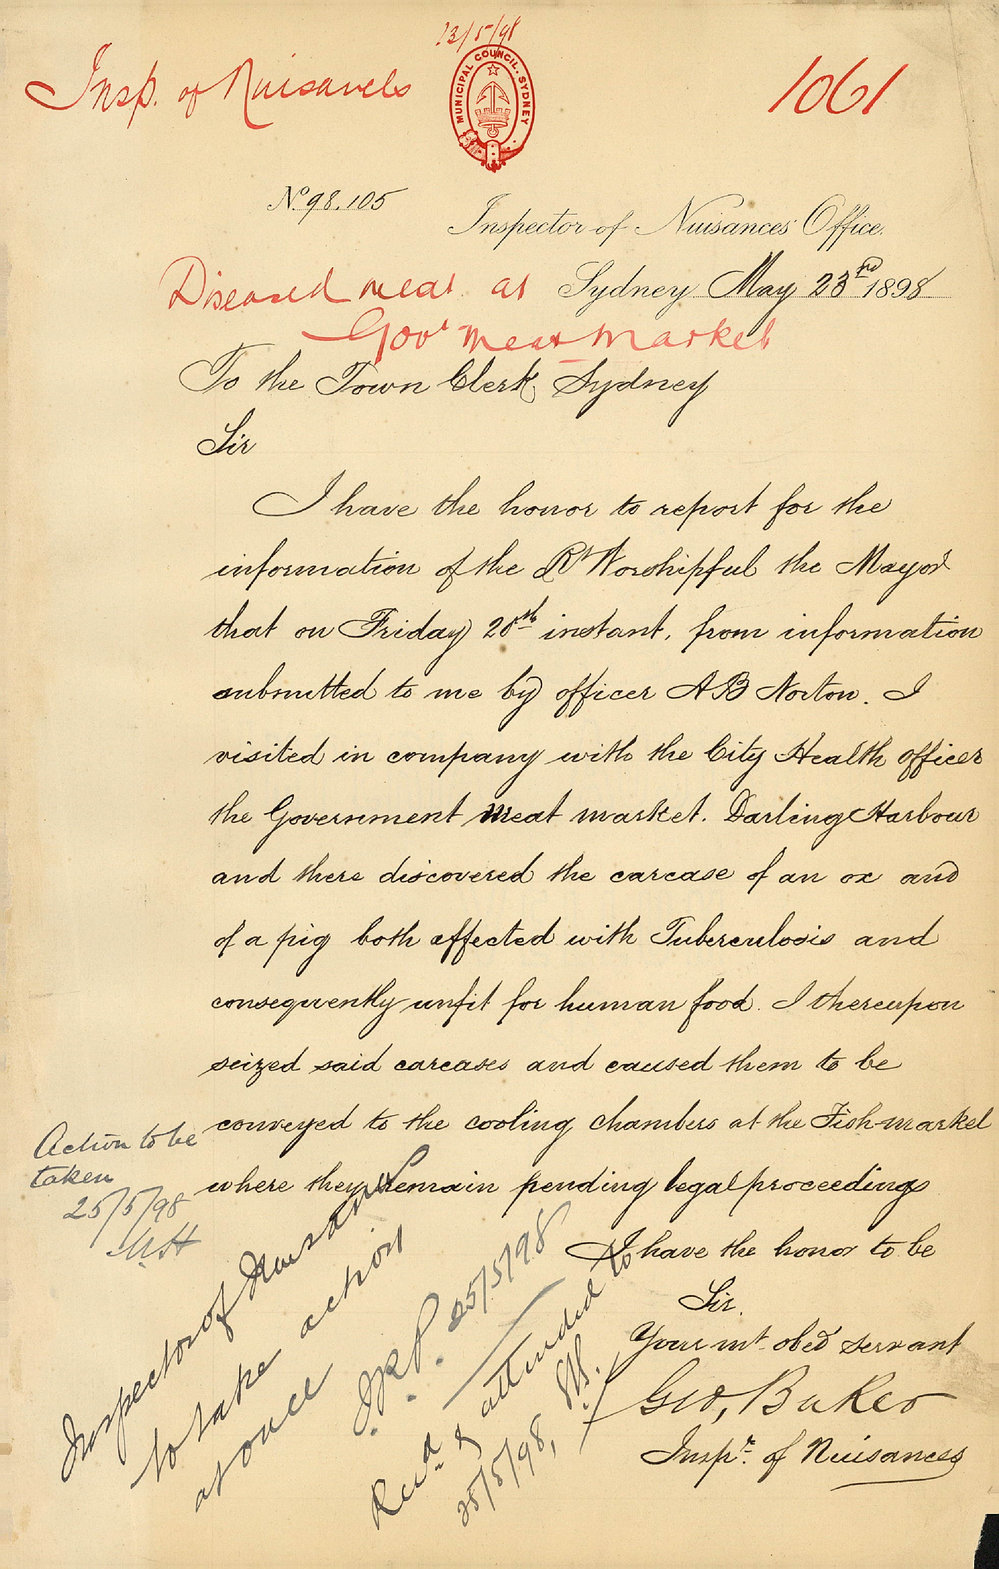 23/5/98
Insp. of Nuisances
1061
MUNICIPAL COUNCIL. SYDNEY
No 98.105
Inspector of Nuisances' Office.
Sydney May 23rd 1898
Diseased meat at
Govt meat market
To the Town Clerk, Sydney
Sir
I have the honor to report for the
information of the Rt Worshipful the Mayor
that on Friday 20th instant, from information
submitted to me by officer A B Norton. I
visited in company with the City Health officer
the Government Meat market. Darling Harbour
and there discovered the carcase of an ox and
of a pig both affected with Tuberculosis and
consequently unfit for human food. I thereupon
seized said carcases and caused them to be
conveyed to the cooling chambers at the Fish-market
where they remain pending legal proceedings
I have the honor to be
Sir.
Your mt. obed servant
Geo, Baker
Inspr. of Nuisances
Action to be
taken
25/5/98
Inspector of Nuisances
to take action
at once
25/5/98
Recd & attended to
25/5/98,